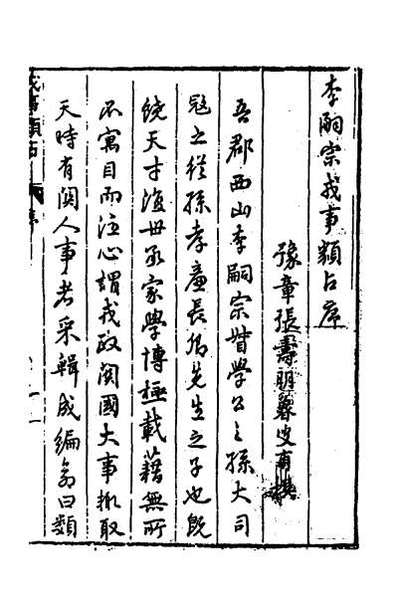 李嗣宗戎事類占序
豫章張壽朋夔叟甫撰
吾郡西山李嗣宗督學公之孫大司
冦之從孫孝廉長卿先生之子也既
饒天才復世承家學博極載藉無所
不寓目而注心謂戎政関國大事輒取
天時有関人事者采輯成編命曰類
戎事類占 序